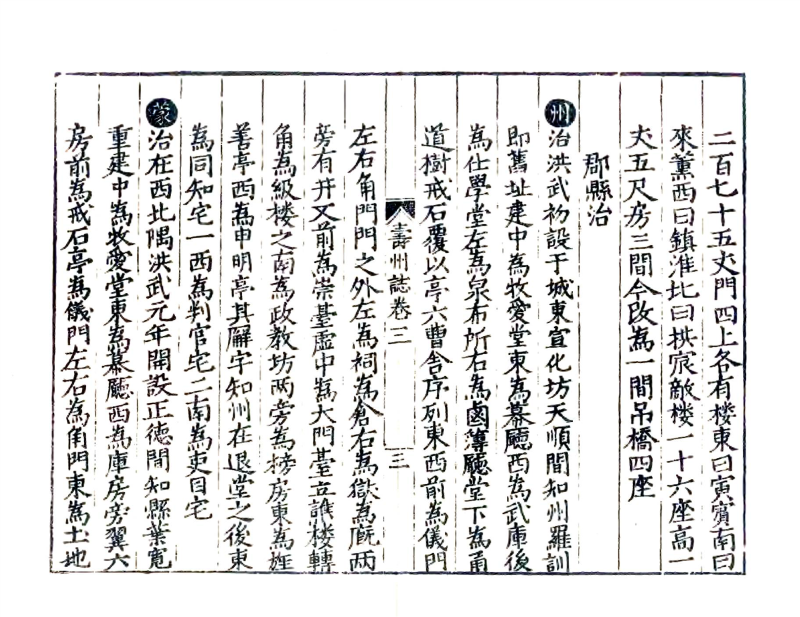 二百七十五丈門四上各有楼東曰寅賓南曰
來薰西曰鎮淮北曰拱宸敵楼一十六座高一
丈五尺房三間今改為一間吊橋四座
郡縣治
州治洪武初設于城東宣化坊天順間知州羅訓
即舊址建中為牧愛堂東為幕廳西為武庫後
為仕學堂左為泉布所右為鹵簿廳堂下為甬
道樹戒石覆以亭六曹舍序列東西前為儀門
壽州誌卷三
三
左右角門門之外左為祠為倉右為獄為廐兩
旁有井又前為崇臺虛中為大門臺立譙楼轉
角為級楼之南為政教坊兩旁為榜房東為旌
善亭西為申明亭其廨宇知州在退堂之後東
為同知宅一西為判官宅二南為吏目宅
蒙治在西北隅洪武元年開設正德間知縣葉寬
重建中為牧愛堂東為幕廳西為庫房旁翼六
房前為戒石亭為儀門左右為角門東為土地